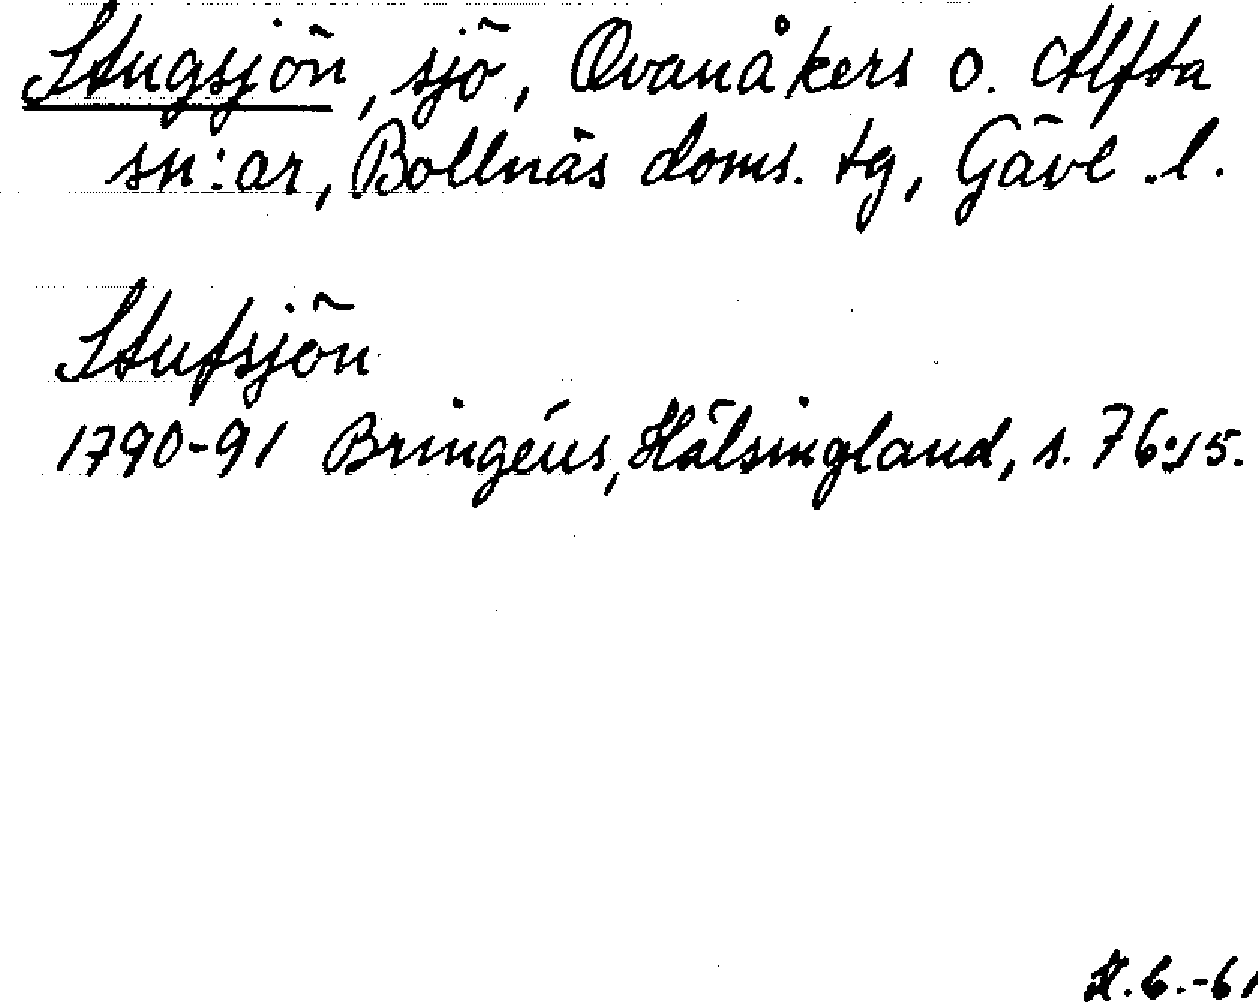 Stugsjön, sjö, Ovanåkers o. Alfta
sn:ar, Bollnäs doms. tg, Gävl. l.
Stufsjön
1790-91 Bringéus, Hälsingland, s. 76:15.